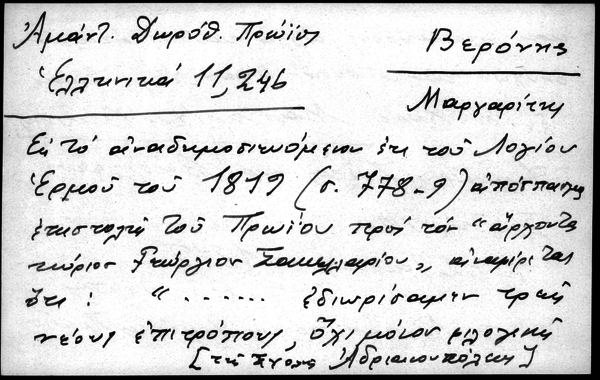 Ἀμάντ. Δωρόθ. Πρώϊος
Βερόνης
Ἑλληνικά 11, 246
Μαργαρίτης
Εἰς τό ἀναδημοσιευόμενον ἐκ τοῦ Λογίου
Ἑρμοῦ τοῦ 1819 (σ. 778-9) ἀπόσπασμα
ἐπιστολῆς τοῦ Πρωΐου πρός τόν "ἄρχοντα
κύριον Γεώργιον Σακελλαρίου„ ἀναφέρεται
ὅτι : " . . . . . . ἐδιωρίσαμεν τρεῖς
νέους ἐπιτρόπους, ὄχι μόνον φιλογενεῖς
[τῆς Σχολῆς Ἀδριανουπόλεως]